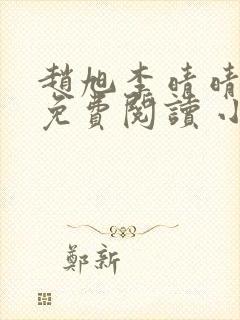 趙旭李晴晴
免費閱讀小
鄭新